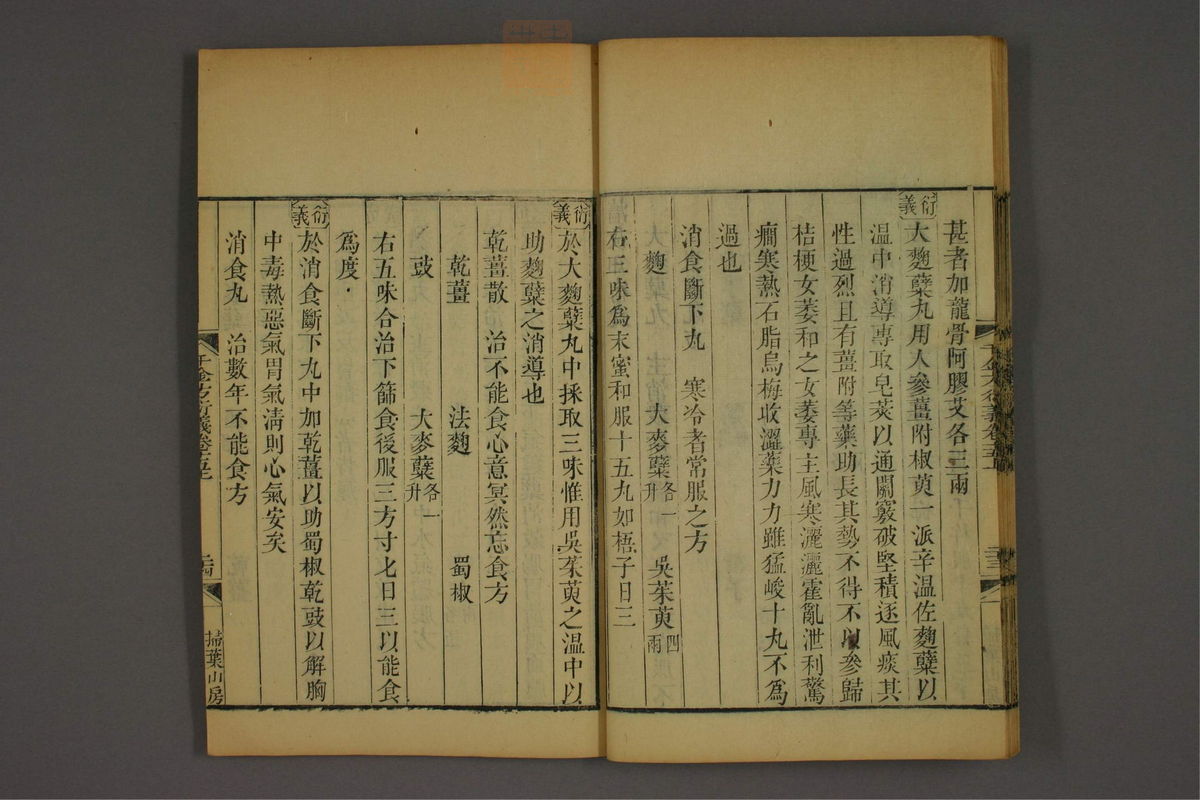 甚者加龍骨阿膠艾各三兩
衍義
大麴蘗丸用人參薑附椒萸一派辛溫佐麴蘗以
溫中消導專取皂莢以通關竅破堅積逐風痰其
性過烈且有薑附等藥助長其勢不得不以參歸
桔梗女萎和之女萎專主風寒灑灑霍亂泄利驚
癇寒熱石脂烏梅收澀藥力力雖猛峻十丸不爲
過也
消食斷下丸 寒冷者常服之方
麴 大麥蘗各一升 吳茱萸四兩
右三味爲末蜜和服十五丸如梧子日三
衍義
於大麴蘗丸中採取三味惟用吳茱萸之溫中以
助麴蘗之消導也
乾薑散 治不能食心意冥然忘食方
乾薑 法麴 蜀椒
豉 大麥蘗各一升
右五味合治下篩食後服三方寸匕日三以能食
爲度
衍義
於消食斷下丸中加乾薑以助蜀椒乾豉以解胸
中毒熱惡氣胃氣淸則心氣安矣
消食丸 治數年不能食方
千金方衍義卷十五
掃葉山房